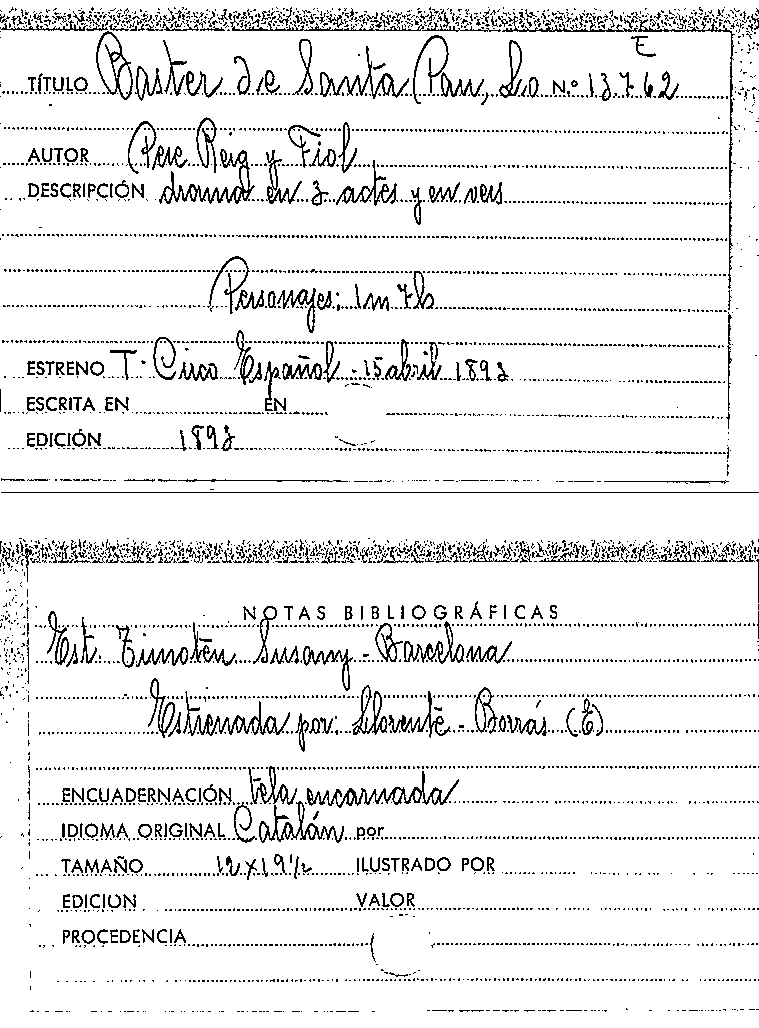 E
TÍTULO Baster de Santa Pau, Lo N.º 13.762
AUTOR Pere Reig y Fiol
DESCRIPCIÓN drama en 3 actes y en vers
Personajes: 1m 7h
ESTRENO T. Circo Español - 15 abril 1893
ESCRITA EN EN
EDICIÓN 1893
NOTAS BIBLIOGRÁFICAS
Est. Timoteu Susany - Barcelona
Estrenada por: Llorente - Borrás (E)
ENCUADERNACIÓN tela encarnada
IDIOMA ORIGINAL Catalán por
TAMAÑO 12x19½ ILUSTRADO POR
EDICION VALOR
PROCEDENCIA